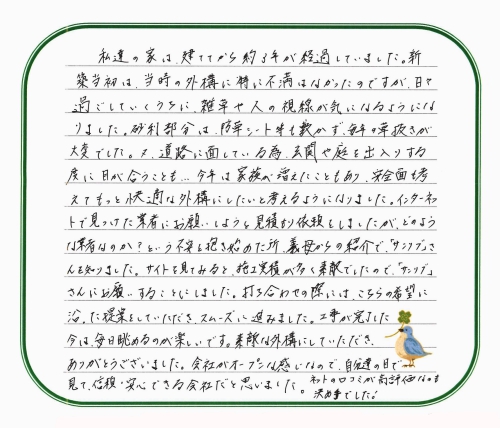 私達の家は、建ててから約3年が経過していました。新
築当初は、当時の外構に特に不満はなかったのですが、日々
過ごしていくうちに、雑草や人の視線が気になるようにな
りました。砂利部分は、防草シート等も敷かず、毎年の草抜きが
大変でした。又、道路に面している為、玄関や庭を出入りする
度に目が合うことも…今年は家族が増えたこともあり、安全面も考
えてもっと快適な外構にしたいと考えるようになりました。インターネッ
トで見つけた業者にお願いしようと見積もり依頼をしましたが、どのよう
な業者なのか？という不安を抱き始めた所、義母からの紹介で、「サンリブ」さ
んを知りました。サイトを見てみると、施工実績が多く素敵でしたので、「サンリブ」
さんにお願いすることにしました。打ち合わせの際には、こちらの希望に
沿った提案をしていただき、スムーズに進みました。工事が完了した
今は、毎日眺めるのが楽しいです。素敵な外構にしていただき、
ありがとうございました。会社がオープンな感じなので、自分達の目で
見て、信頼・安心できる会社だと思いました。
ネットの口コミが高評価なのも
決め手でした！